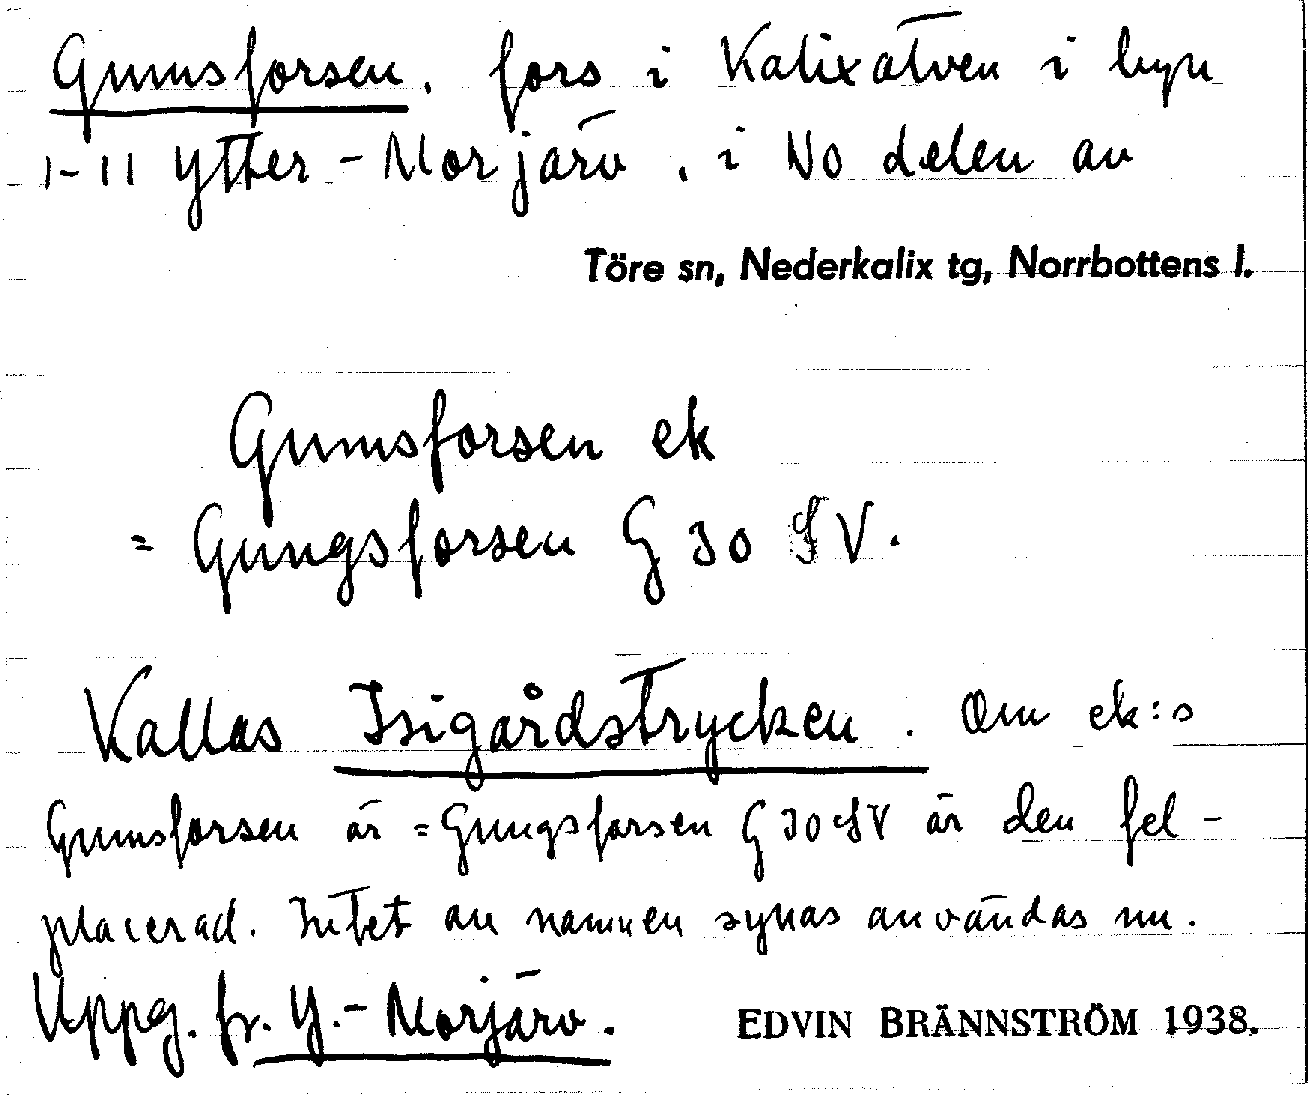 Gumsforsen. fors i Kalixälven i byn
1-11 Ytter-Morjärv, i No delen av
Töre sn, Nederkalix tg, Norrbottens l.
Gumsforsen ek
= Gungsforsen G 30 SV.
Kallas Isigårdstrycken. Om ek:s
Gumsforsen är = Gungsforsen G 30 SV är den fel-
placerad. Intet av namnen synas användas nu.
Uppg. fr. Y.-Morjärv.
EDVIN BRÄNNSTRÖM 1938.